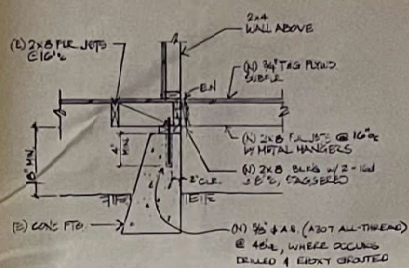 2x4
WALL ABOVE
(E) 2x8 FLR JSTS
@ 16"c
E.N.
(N) 3/4" T&G PLYWD
SUBFLR
(N) 2x8 FLR JSTS @ 16"oc
W/ METAL HANGERS
(N) 2x8 BLKG w/ 2-16d
@ 8"c, STAGGERED
18" MIN.
MIN.
2" CLR.
(E) CONC FTG.
(N) 5/8" ϕ A.B. (A307 ALL-THREAD)
@ 48"c, WHERE OCCURS
DRILLED & EPOXY GROUTED